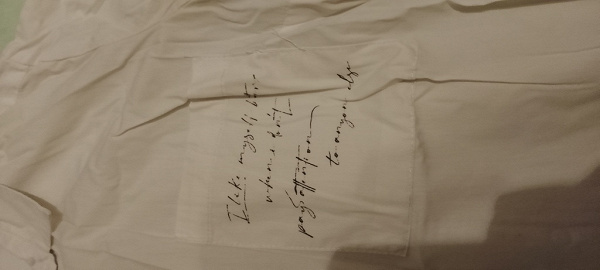 I like myself
when I don't
pay attention
to anyone else